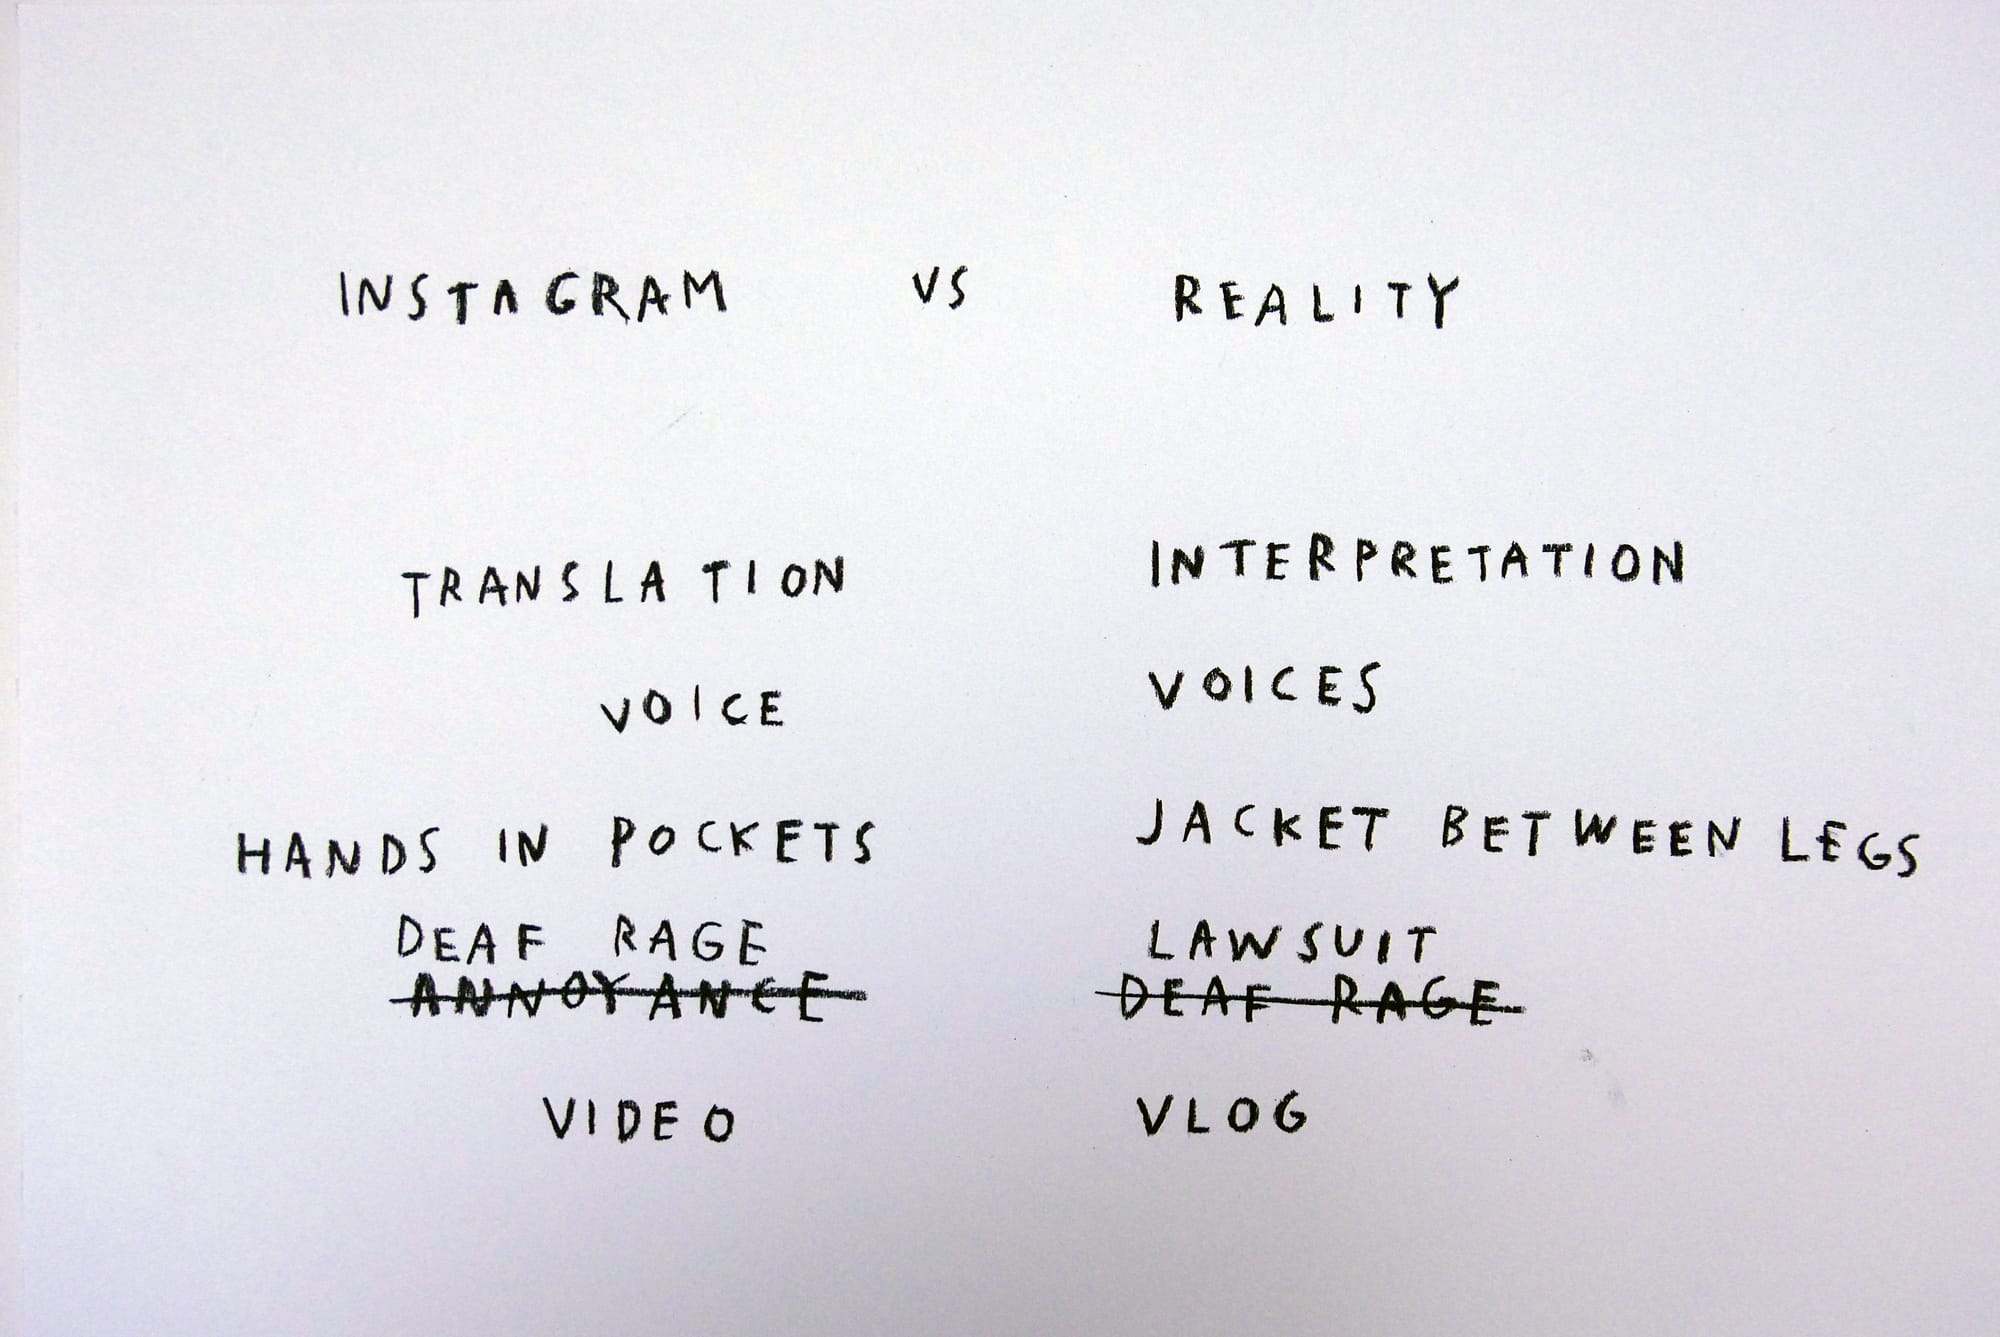 INSTAGRAM VS REALITY
TRANSLATION INTERPRETATION
VOICE VOICES
HANDS IN POCKETS JACKET BETWEEN LEGS
DEAF RAGE LAWSUIT
ANNOYANCE DEAF RAGE
VIDEO VLOG